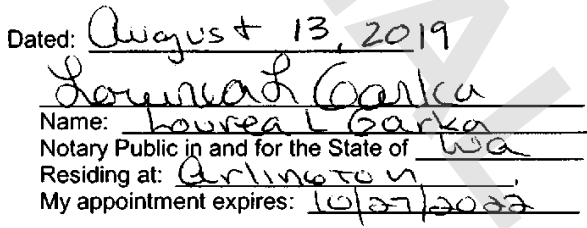 Dated: August 13, 2019
Lourea L Garka
Name: Lourea L Garka
Notary Public in and for the State of Wa
Residing at: Arlington,
My appointment expires: 10/27/2022